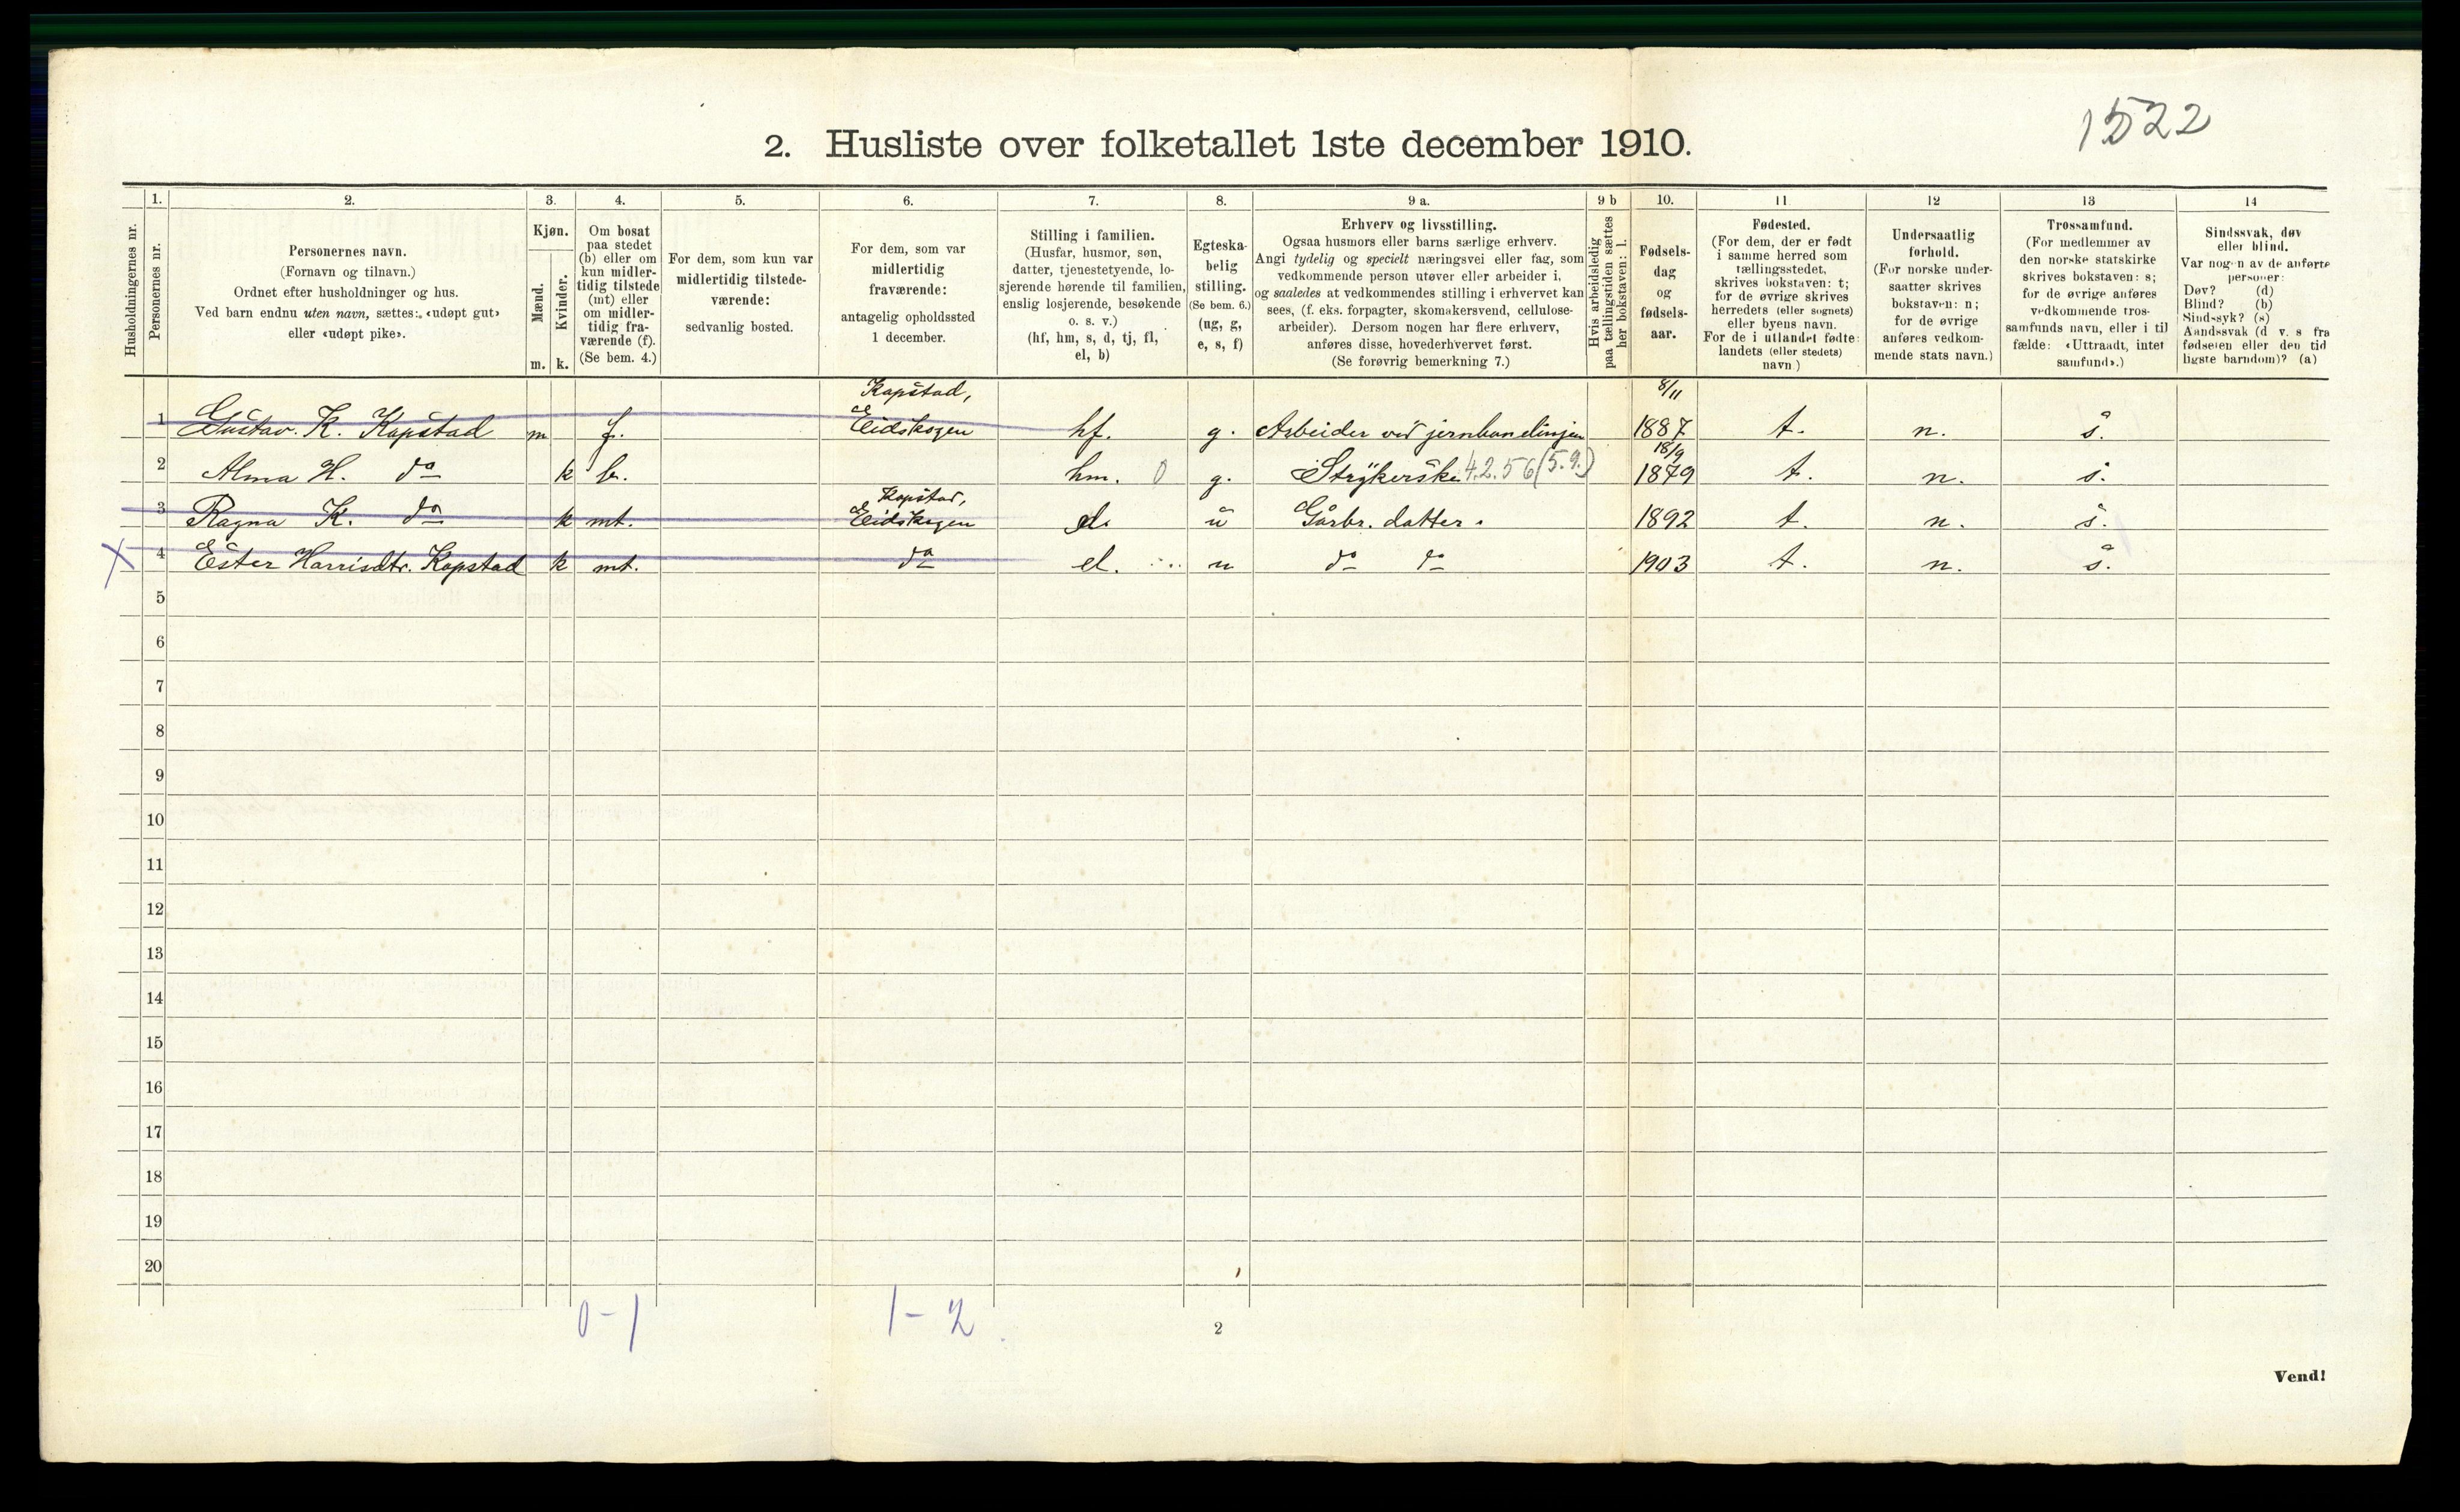 1522
2. Husliste over folketallet 1ste december 1910.
Husholdningernes nr.
1.
Personernes nr.
2.
Personernes navn.
(Fornavn og tilnavn.)
Ordnet efter husholdninger og hus.
Ved barn endnu uten navn, sættes: «udøpt gut»
eller «udøpt pike».
3.
Kjøn.
Mænd.
m.
Kvinder.
k.
4.
Om bosat
paa stedet
(b) eller om
kun midler-
tidig tilstede
(mt) eller
om midler-
tidig fra-
værende (f).
(Se bem. 4.)
5.
For dem, som kun var
midlertidig tilstede-
værende:
sedvanlig bosted.
6.
For dem, som var
midlertidig
fraværende:
antagelig opholdssted
1 december.
7.
Stilling i familien.
(Husfar, husmor, søn,
datter, tjenestetyende, lo-
sjerende hørende til familien,
enslig losjerende, besøkende
o. s. v.)
(hf, hm, s, d, tj, fl,
el, b)
8.
Egteska-
belig
stilling.
(Se bem. 6.)
(ug, g,
e, s, f)
9 a.
Erhverv og livsstilling.
Ogsaa husmors eller barns særlige erhverv.
Angi tydelig og specielt næringsvei eller fag, som
vedkommende person utøver eller arbeider i,
og saaledes at vedkommendes stilling i erhvervet kan
sees, (f. eks. forpagter, skomakersvend, cellulose-
arbeider). Dersom nogen har flere erhverv,
anføres disse, hovederhvervet først.
(Se forøvrig bemerkning 7.)
9 b
Hvis arbeidsledig
paa tællingstiden sættes
her bokstaven: l.
10.
Fødsels-
dag
og
fødsels-
aar.
11
Fødested.
(For dem, der er født
i samme herred som
tællingsstedet,
skrives bokstaven: t;
for de øvrige skrives
herredets (eller sognets)
eller byens navn.
For de i utlandet fødte:
landets (eller stedets)
navn.)
12
Undersaatlig
forhold.
(For norske under-
saatter skrives
bokstaven: n;
for de øvrige
anføres vedkom-
mende stats navn.)
13
Trossamfund.
(For medlemmer av
den norske statskirke
skrives bokstaven: s;
for de øvrige anføres
vedkommende tros-
samfunds navn, eller i til
fælde: «Uttraadt, intet
samfund».)
14
Sindssvak, døv
eller blind.
Var nogen av de anførte
personer:
Døv? (d)
Blind? (b)
Sindssyk? (s)
Aandssvak (d v. s fra
fødselen eller den tid
ligste barndom)? (a)
Kapstad, 8/11
1 Gustav. K. Kapstad m f. Eidskogen hf. g. Arbeider ved jernbanelinjen 1887 t. n. s.
18/9
2 Alma H. do k b. hm. 0 g. Strykerske 4.2.56 (5.9.) 1879 t. n. s.
Kapstad,
3 Ragna K. do k mt. Eidskogen el. u Gårbr. datter. 1892 t. n. s.
X 4 Ester Harrisdtr. Kapstad k mt. do el. u do do 1903 t. n. s.
5
6
7
8
9
10
11
12
13
14
15
16
17
18
19
20
0-1 1-2
2
Vend!